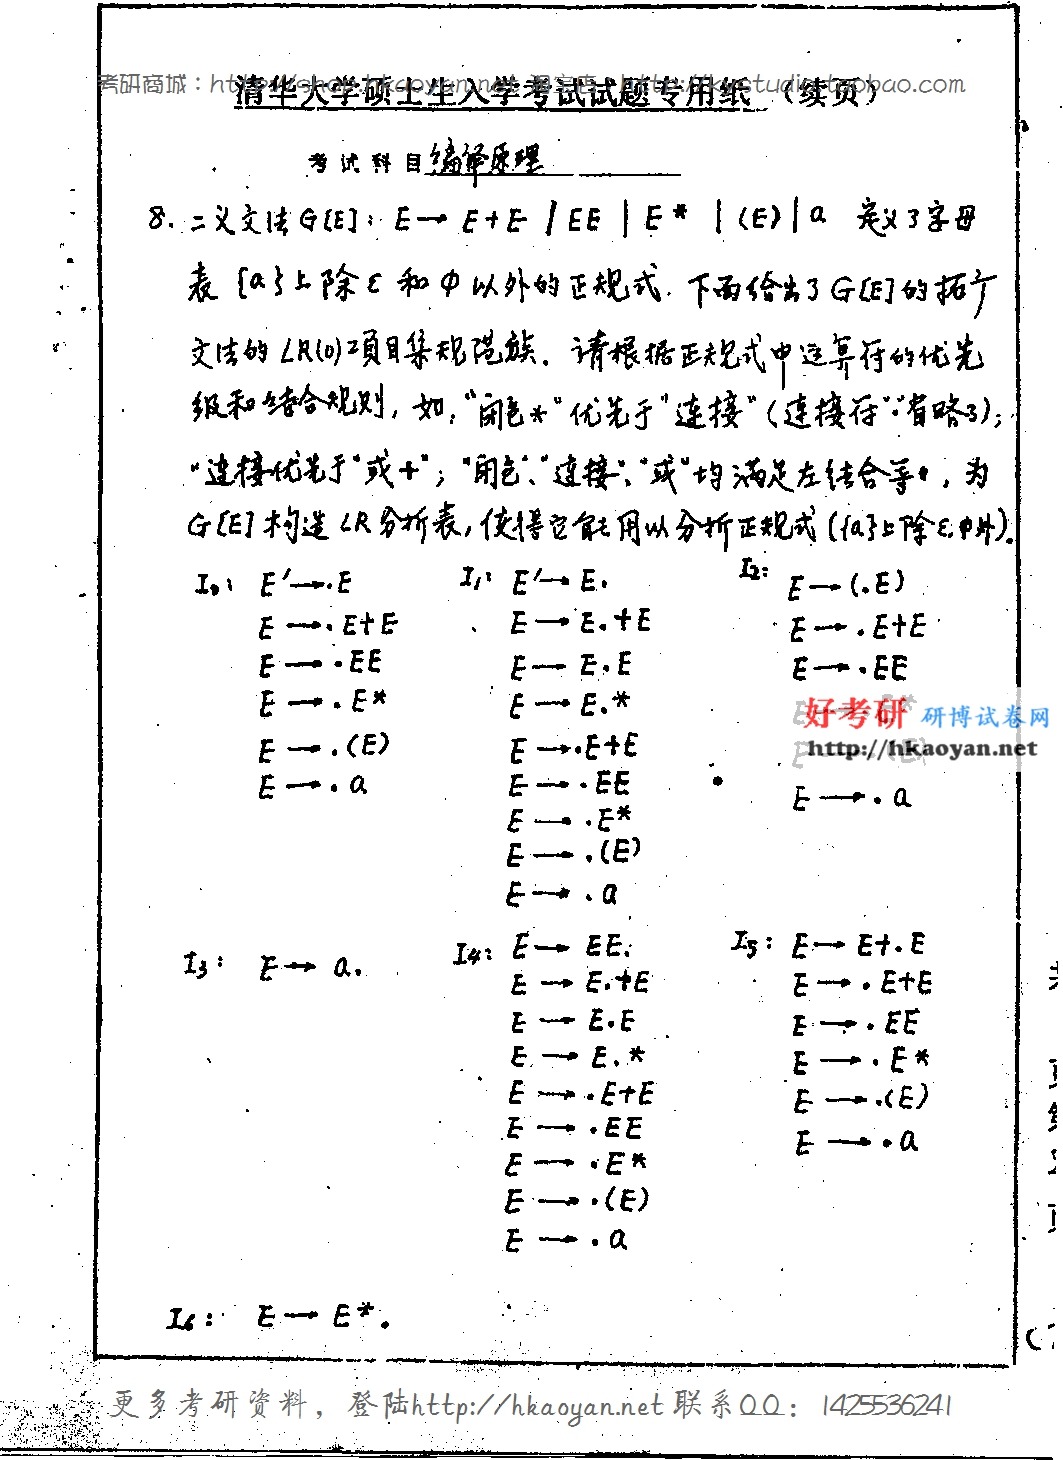 考研商城：http://shop.hkaoyan.net 淘宝店：http://hkystudio.taobao.com
清华大学硕士生入学考试试题专用纸（续页）
考试科目 编译原理
8. 二义文法G[E]：E → E+E | EE | E* | (E) | a 定义了字母
表{a}上除ε和φ以外的正规式. 下面给出了G[E]的拓广
文法的LR(0)项目集规范族. 请根据正规式中运算符的优先
级和结合规则, 如, "闭包*"优先于"连接"(连接符"·"省略了);
"连接优先于"或+"; "闭包"、"连接"、"或"均满足左结合等, 为
G[E]构造LR分析表, 使得它能用以分析正规式({a}上除ε,φ外).
I0: E′ → .E
E → .E+E
E → .EE
E → .E*
E → .(E)
E → .a
I1: E′ → E.
E → E.+E
E → E.E
E → E.*
E → .E+E
E → .EE
E → .E*
E → .(E)
E → .a
I2: E → (.E)
E → .E+E
E → .EE
好考研 研博试卷网
http://hkaoyan.net
E → .a
I3: E → a.
I4: E → EE.
E → E.+E
E → E.E
E → E.*
E → .E+E
E → .EE
E → .E*
E → .(E)
E → .a
I5: E → E+.E
E → .E+E
E → .EE
E → .E*
E → .(E)
E → .a
I6: E → E*.
更多考研资料，登陆http://hkaoyan.net 联系QQ：1425536241